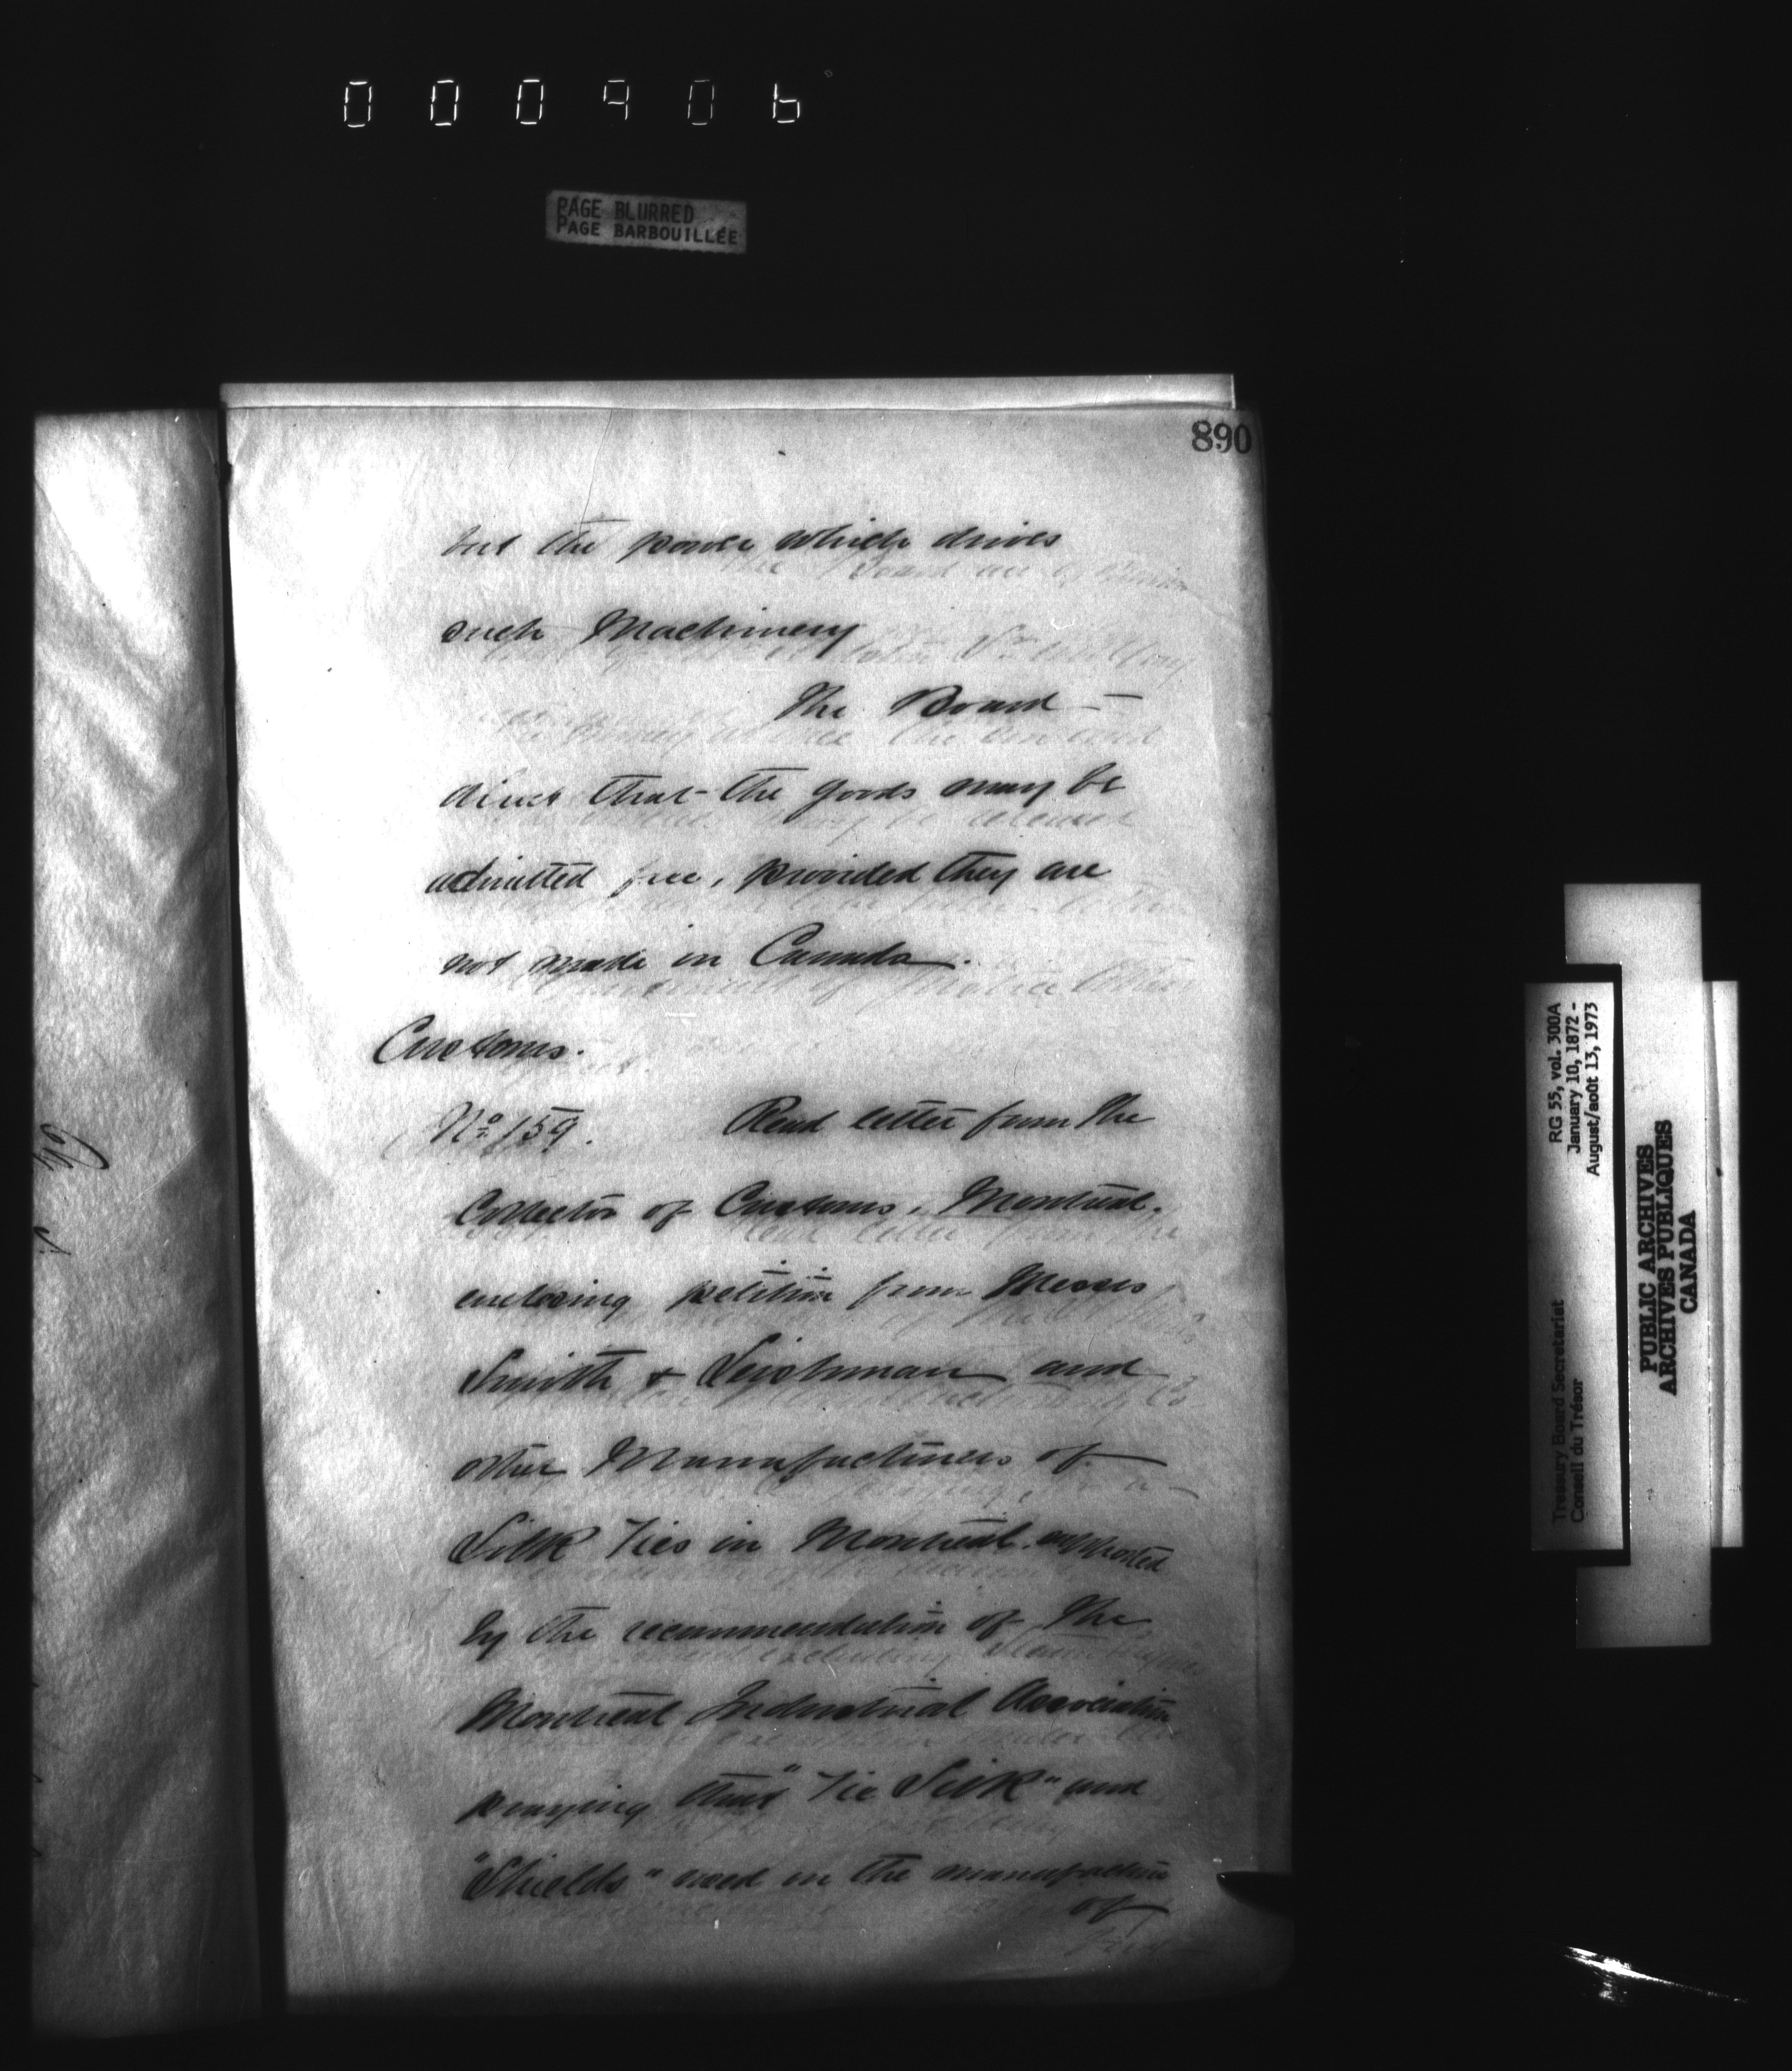 000906
PAGE BLURRED
PAGE BARBOUILLÉE
890
but the power which drives
such Machinery
The Board —
direct that the goods may be
admitted free, provided they are
not made in Canada.
Customs.
No. 159. Read letter from the
Collector of Customs, Montreal.
enclosing petition from Messrs
Smith & Leishman and
other Manufacturers of
Silk Ties in Montreal. supported
by the recommendation of the
Montreal Industrial Association
praying that "Tie Silk" and
"Shields" used in the manufacture
of
RG 55, vol. 300A
January 10, 1872 -
August/août 13, 1973
Treasury Board Secretariat
Conseil du Trésor
PUBLIC ARCHIVES
ARCHIVES PUBLIQUES
CANADA